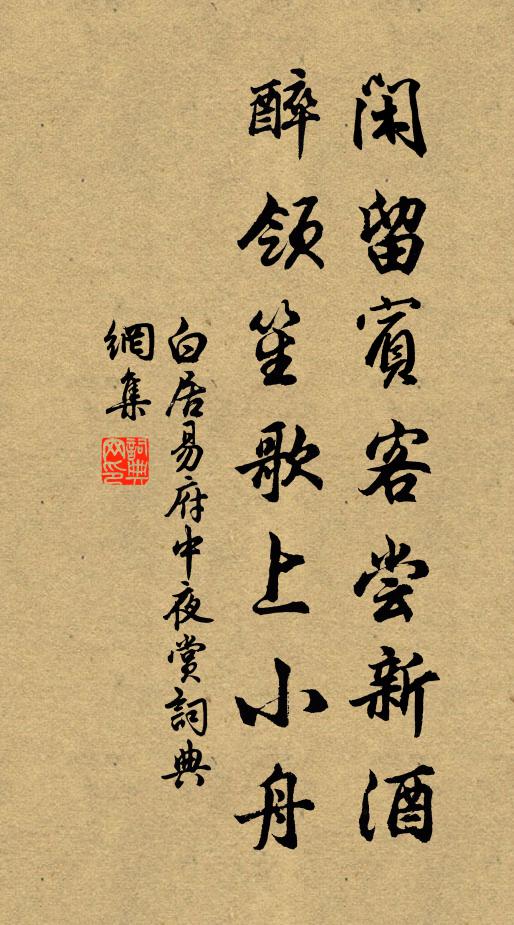 閑留賓客尝新酒
醉領笙歌上小舟
白居易府中夜賞詞典
網集
詞典網印